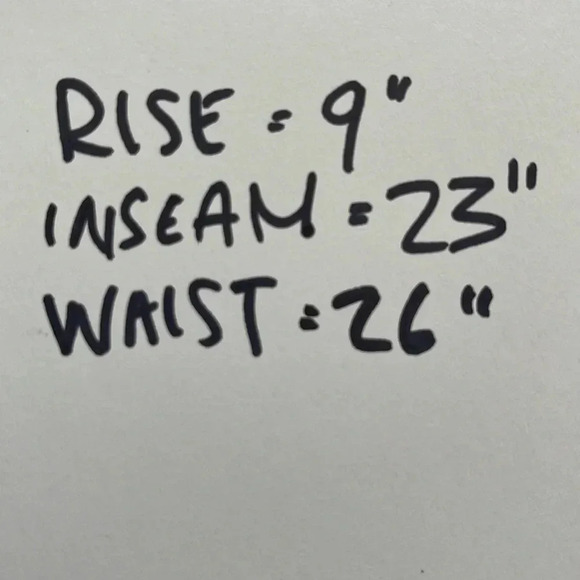 RISE = 9"
INSEAM = 23"
WAIST = 26"